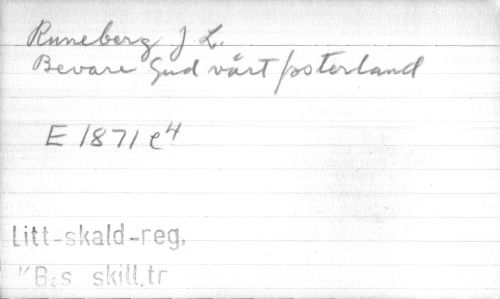 Runeberg J L.
Bevare Gud vårt fosterland
E 1871 e4
Litt-skald-reg.
KB:s skill.tr